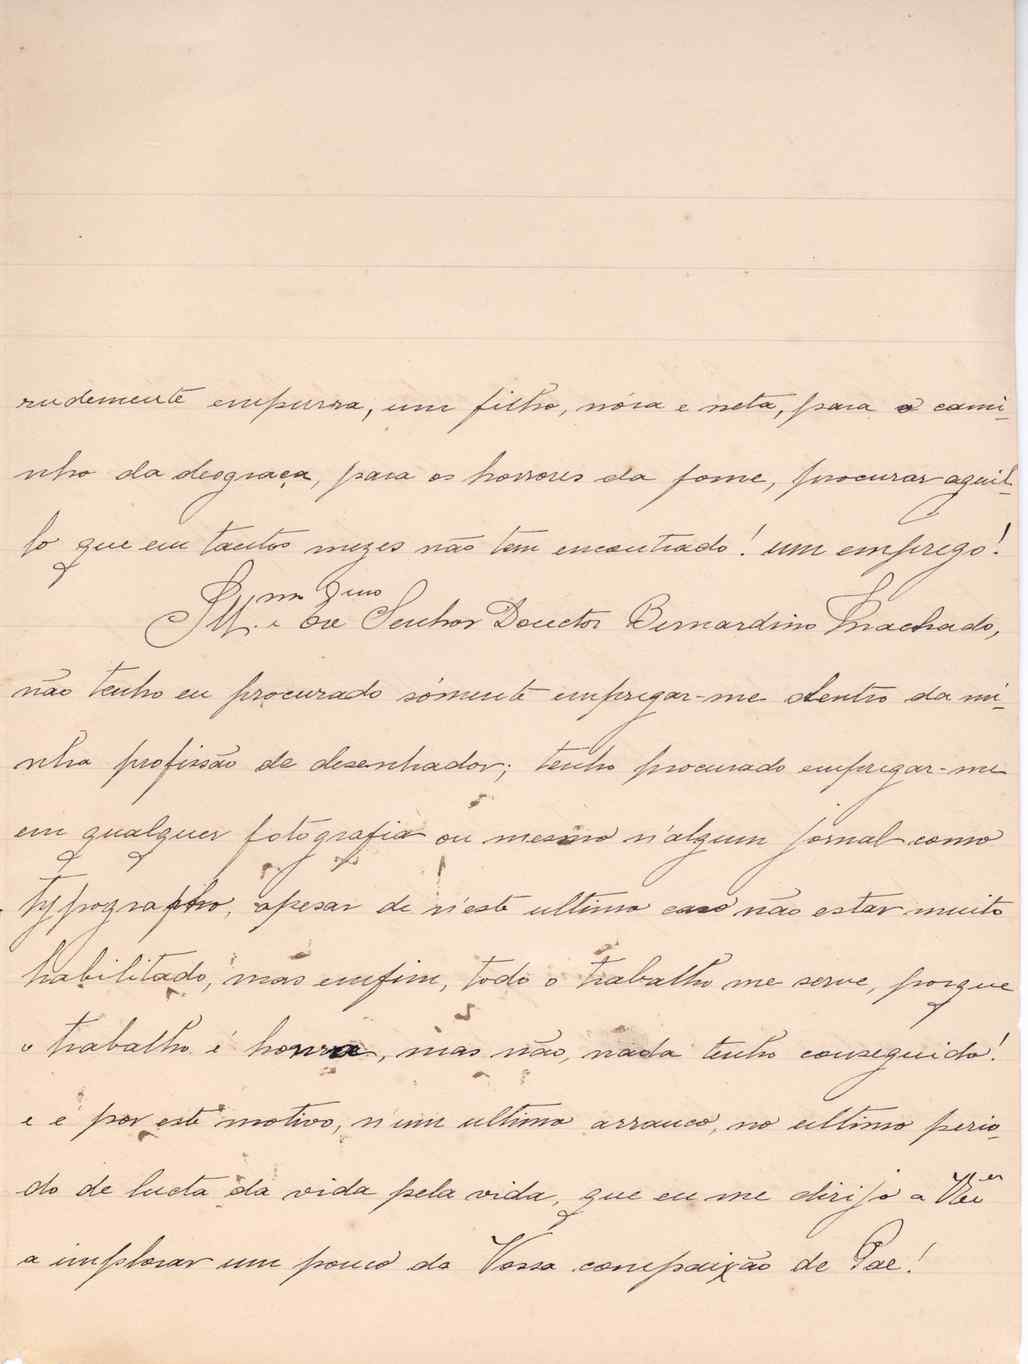 rudemente empurra, um filho, nóra e neta, para o cami-
nho da desgraça, para os horrores da fome, procurar aquil-
lo que em tantos mezes não tem encontrado! um emprego!
Ill.mo e Ex.mo Senhor Douctor Bernardino Machado,
não tenho eu procurado sómente empregar-me dentro da mi-
nha profissão de desenhador; tenho procurado empregar-me
em qualquer fotografia ou mesmo n'algum jornal como
typographo, apesar de n'este ultimo caso não estar muito
habilitado, mas emfim, todo o trabalho me serve, porque
o trabalho é honra, mas não, nada tenho conseguido!
e é por este motivo, n'um ultimo arranco, no ultimo perio-
do de lucta da vida pela vida, que eu me dirijo a
a implorar um pouco da Vossa compaixão de Pae!